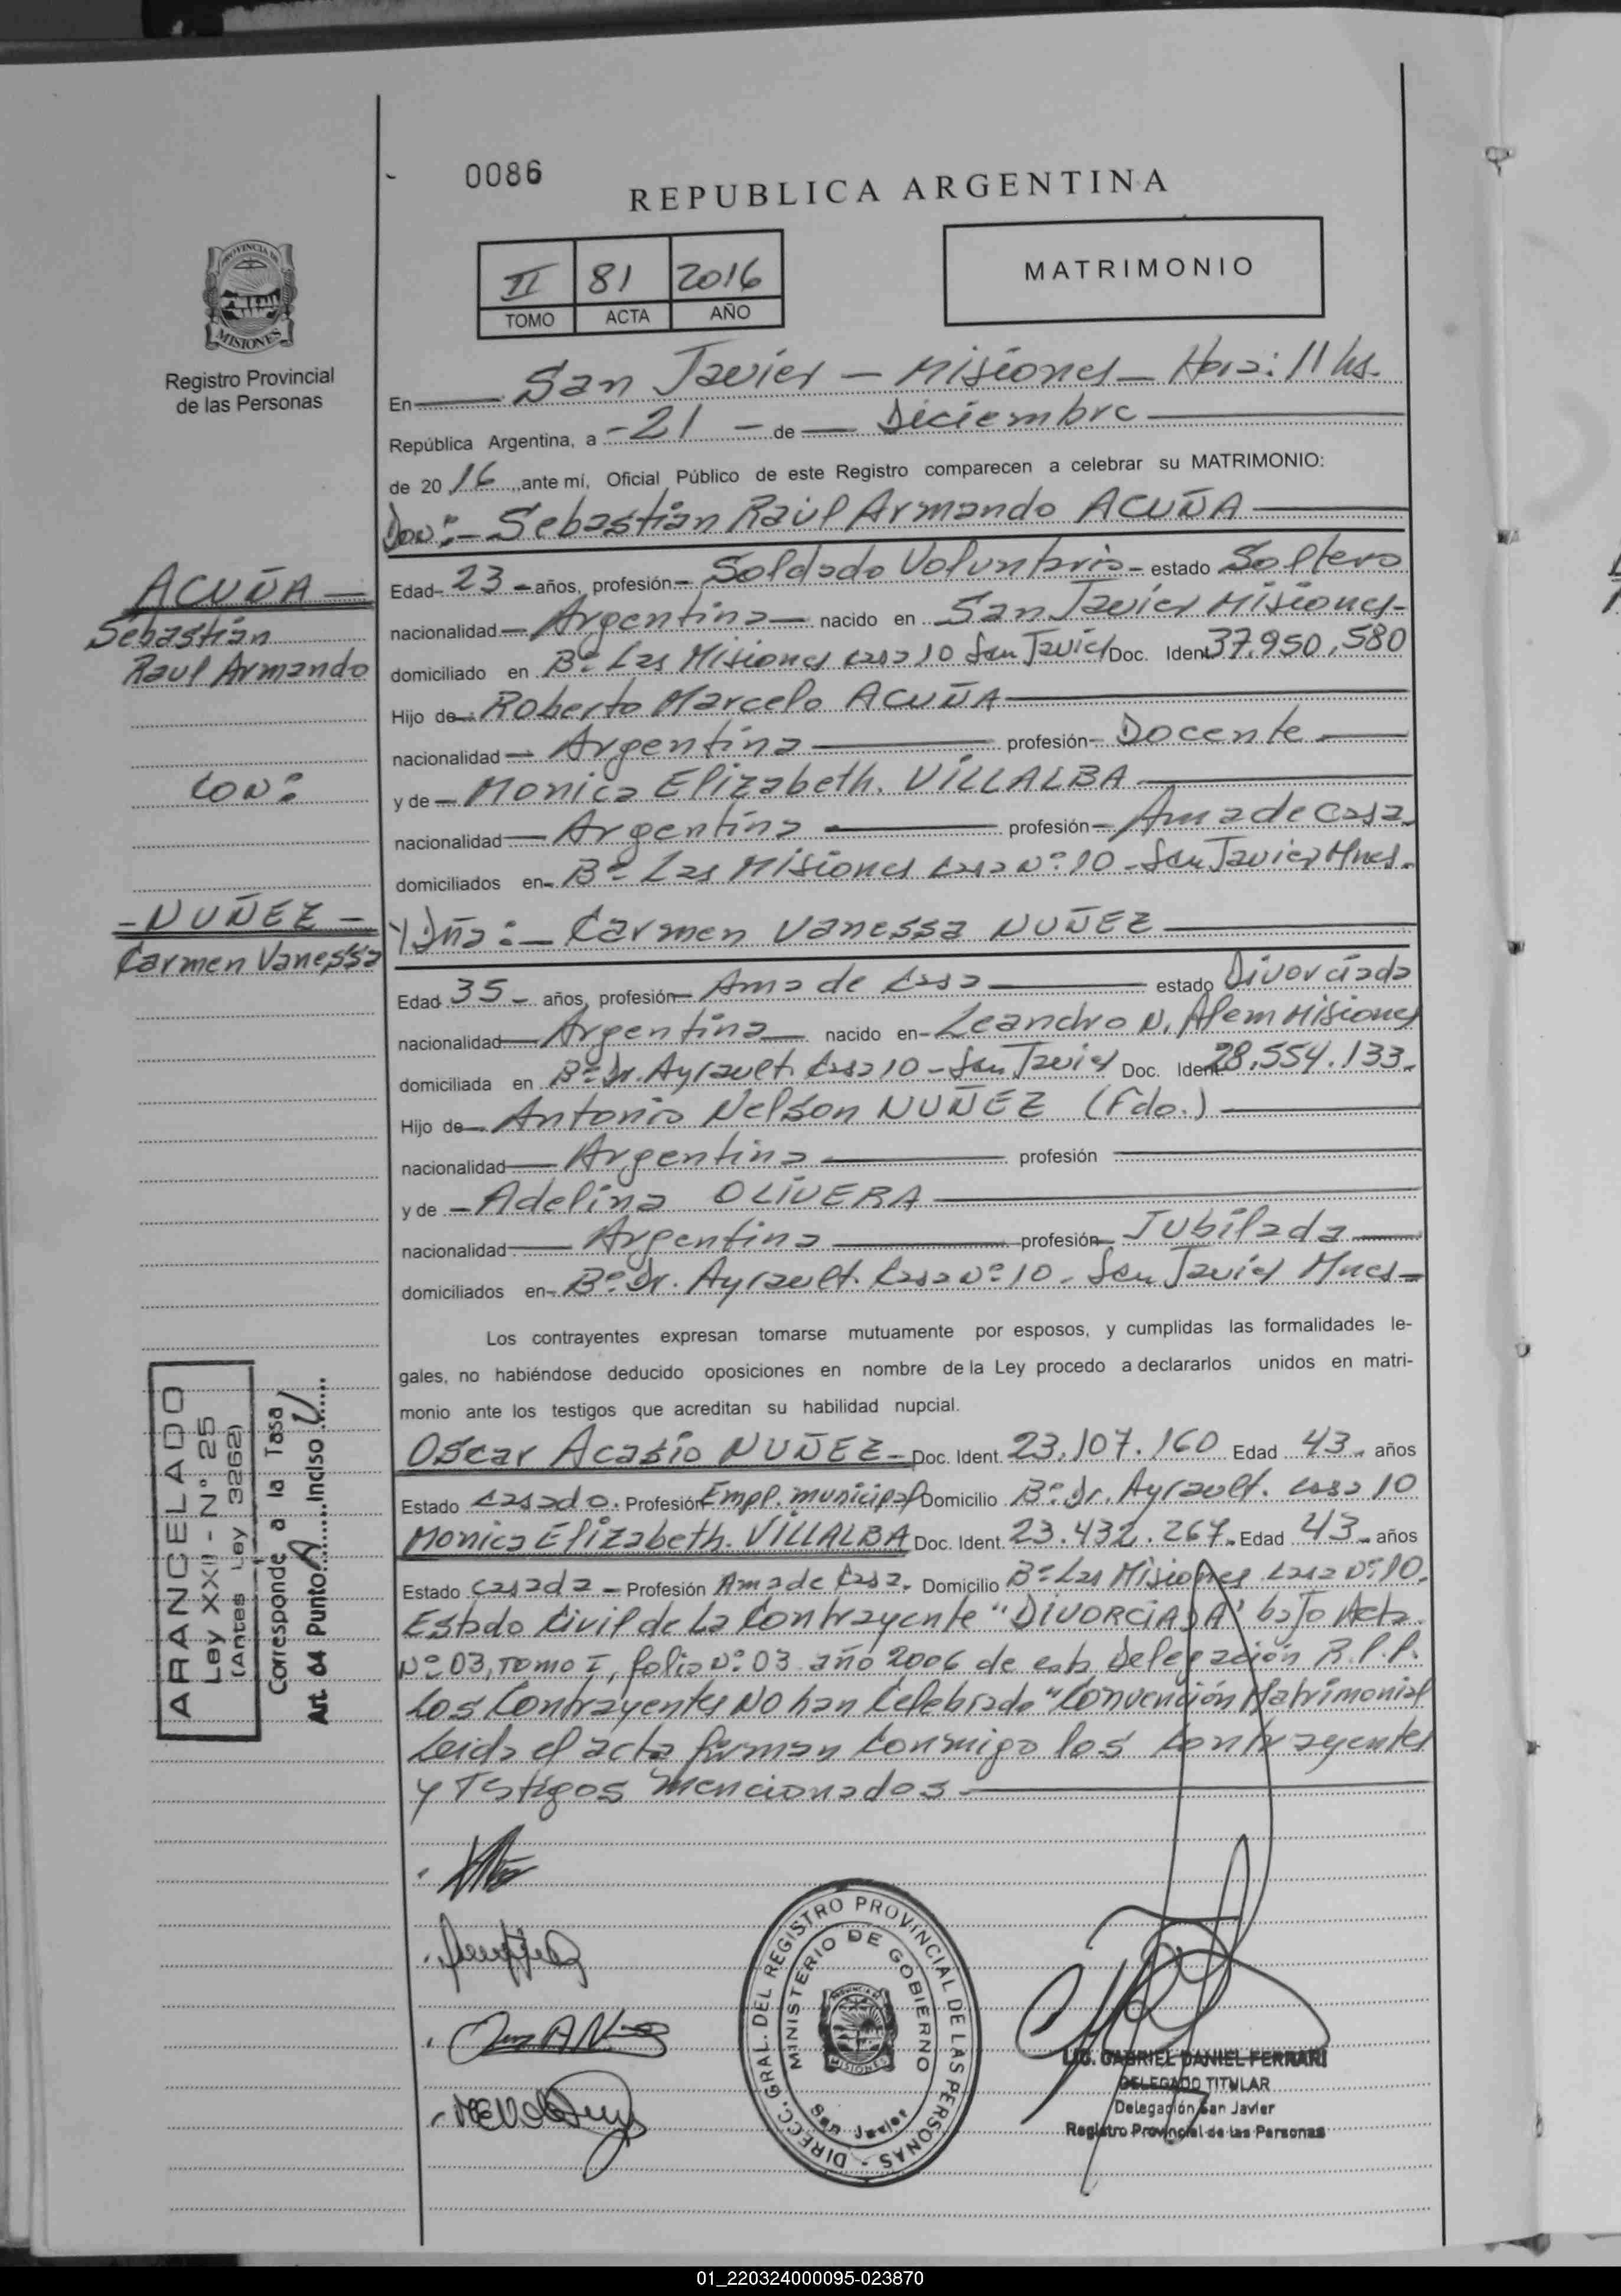 0086
REPUBLICA ARGENTINA
PROVINCIA DE
MISIONES
Registro Provincial
de las Personas
II 81 2016
TOMO ACTA AÑO
MATRIMONIO
En San Javier - Misiones - Hora: 11 hs.
República Argentina, a - 21 - de Diciembre
de 2016, ante mí, Oficial Público de este Registro comparecen a celebrar su MATRIMONIO:
Don: - Sebastián Raúl Armando ACUÑA
ACUÑA
Sebastián
Raul Armando
Edad - 23 - años, profesión - Soldado Voluntario - estado Soltero
nacionalidad - Argentina - nacido en San Javier Misiones -
domiciliado en Bº Las Misiones casa 10 San Javier Doc. Ident 37.950.580
Hijo de Roberto Marcelo ACUÑA
nacionalidad - Argentina profesión - Docente
con:
y de - Monica Elizabeth. VILLALBA
nacionalidad - Argentina profesión - Ama de casa.
domiciliados en - Bº Las Misiones casa Nº 10 - San Javier Mnes.
- NUÑEZ -
Carmen Vanessa
Y Dña: - Carmen Vanessa NUÑEZ
Edad 35 - años, profesión - Ama de casa estado Divorciada
nacionalidad - Argentina nacido en - Leandro N. Alem Misiones
domiciliada en Bº Dr. Ayrault. casa 10 - San Javier Doc. Ident 28.554.133.
Hijo de Antonio Nelson NUÑEZ (Fdo.)
nacionalidad Argentina profesión
y de - Adelina OLIVERA
nacionalidad Argentina profesión - Jubilada
domiciliados en - Bº Dr. Ayrault. casa Nº 10 - San Javier Mnes -
Los contrayentes expresan tomarse mutuamente por esposos, y cumplidas las formalidades le-
gales, no habiéndose deducido oposiciones en nombre de la Ley procedo a declararlos unidos en matri-
monio ante los testigos que acreditan su habilidad nupcial.
Oscar Acasio NUÑEZ - Doc. Ident. 23.107.160 Edad 43 - años
Estado casado. Profesión Empl. municipal Domicilio Bº Dr. Ayrault. casa 10
Monica Elizabeth. VILLALBA Doc. Ident. 23.432.267. Edad 43 - años
Estado casada - Profesión Ama de casa. Domicilio Bº Las Misiones casa Nº 10.
Estado Civil de La Contrayente "DIVORCIADA" bajo Acta
Nº 03, Tomo I, folio Nº 03 año 2006 de esta Delegación R.P.P.
Los Contrayentes NO han Celebrado "Convención Matrimonial
Leida el acta firman conmigo los contrayentes
y Testigos mencionados
ARANCELADO
Ley XXII - Nº 25
(Antes Ley 3262)
Corresponde a la Tasa
Art. 04 Punto A Inciso
DIRECC. GRAL. DEL REGISTRO PROVINCIAL DE LAS PERSONAS -
MINISTERIO DE GOBIERNO
PROVINCIA DE
MISIONES
San Javier
LIC. GABRIEL DANIEL FERRARI
DELEGADO TITULAR
Delegación San Javier
Registro Provincial de las Personas
01_220324000095-023870